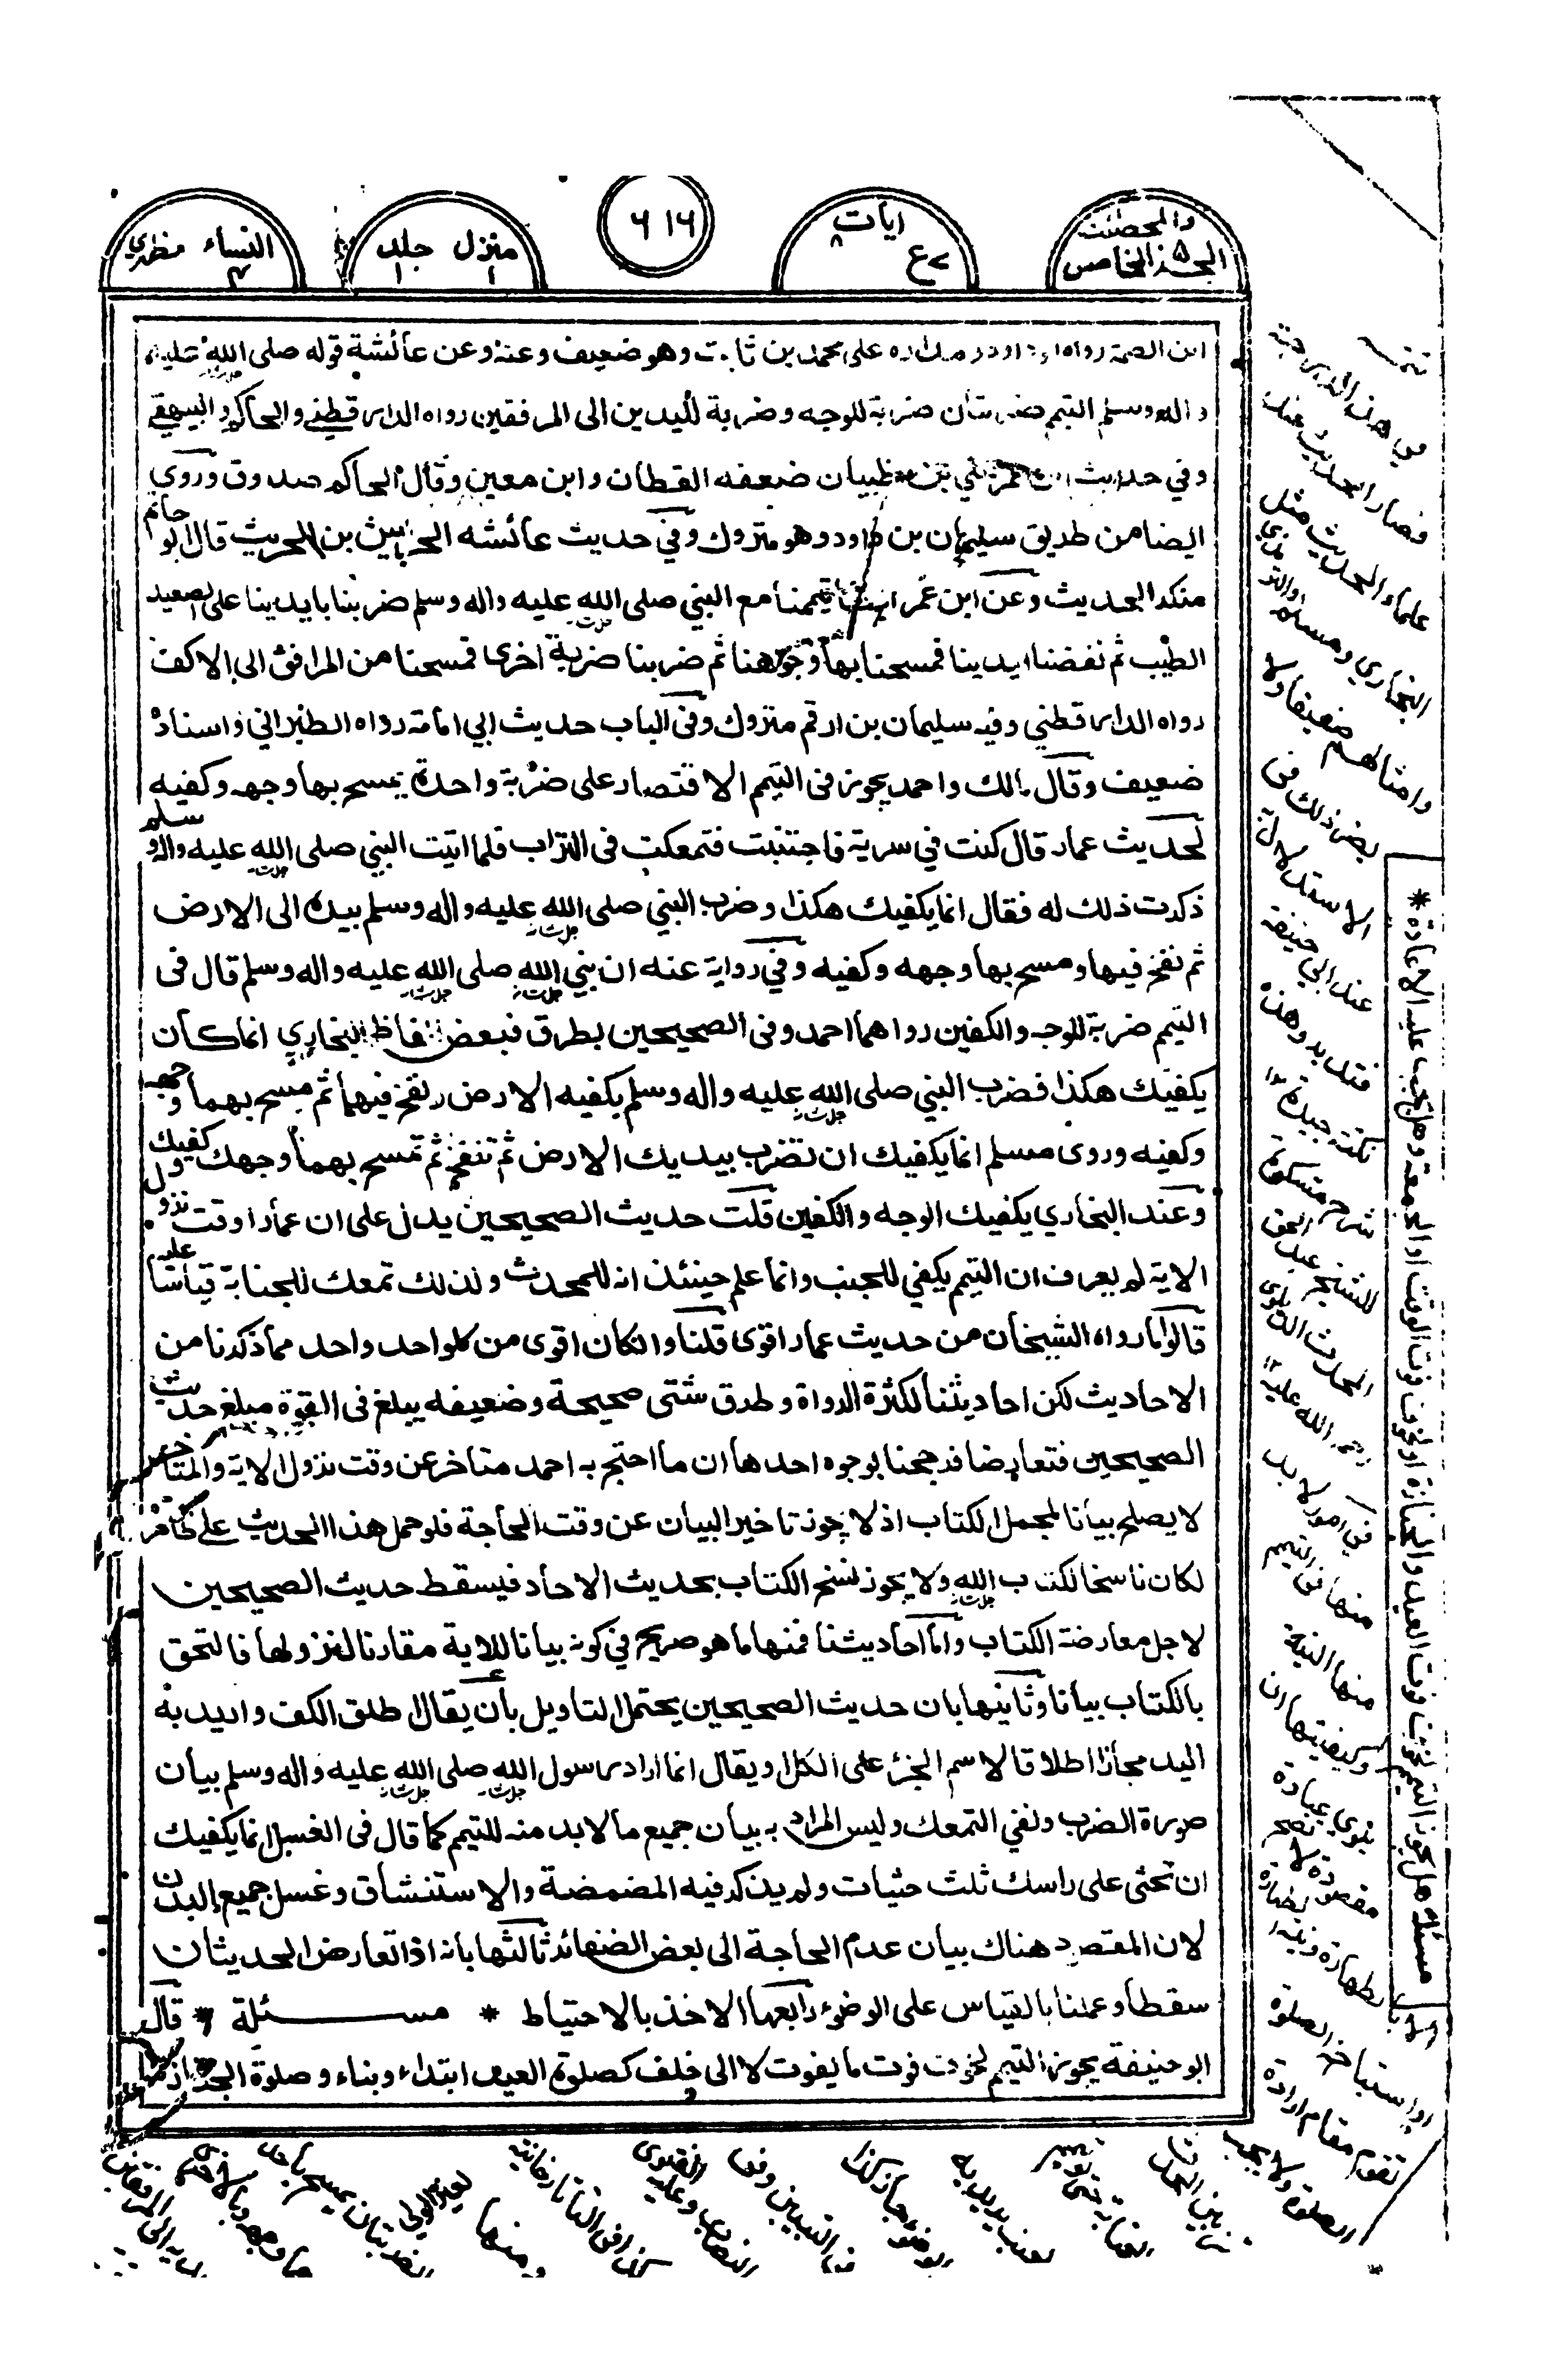 والمحصنت
الجزء الخامس ٥
ايات ٨
ع ٧
٦١٦
منزل جلد
١ ١
النساء مظهري
٤
ابن الصمة رواه على محمد بن ثابت وهو ضعيف وعنه وعن عائشة قوله صلى الله عليه
واله وسلم التيمم ضربتان ضربة للوجه وضربة لليدين الى المرفقين رواه الدارقطني والحاكم والبيهقي
وفي حديث ابن عمر علي بن ظبيان ضعفه القطان وابن معين وقال الحاكم صدوق وروي
ايضا من طريق سليمان بن داود وهو متروك وفي حديث عائشه الحريش بن الحريث قال ابو حاتم
منكر الحديث وعن ابن عمر تيممنا مع النبي صلى الله عليه واله وسلم ضربنا بايدينا على الصعيد
الطيب ثم نفضنا ايدينا فمسحنا بها وجوهنا ثم ضربنا ضربة اخرى فمسحنا من المرافق الى الاكف
رواه الدارقطني وفيه سليمان بن ارقم متروك وفى الباب حديث ابي امامة رواه الطبراني واسناده
ضعيف وقال مالك واحمد يجوز فى التيمم الاقتصار على ضربة واحدة يمسح بها وجهه وكفيه
لحديث عمار قال كنت في سرية فاجتنبت فتمعكت فى التراب فلما اتيت النبي صلى الله عليه واله وسلم
ذكرت ذلك له فقال انما يكفيك هكذا وضرب النبي صلى الله عليه واله وسلم بيده الى الارض
ثم نفخ فيها ومسح بها وجهه وكفيه وفي رواية عنه ان نبي الله صلى الله عليه واله وسلم قال فى
التيمم ضربة للوجه والكفين رواهما احمد وفى الصحيحين بطرق فبعض الفاظ البخاري انما كان
يكفيك هكذا فضرب النبي صلى الله عليه واله وسلم بكفيه الارض ونفخ فيهما ثم مسح بهما وجهه
وكفيه وروى مسلم انما يكفيك ان تضرب بيديك الارض ثم تنفخ ثم تمسح بهما وجهك وكفيك
وعند البخاري يكفيك الوجه والكفين قلت حديث الصحيحين يدل على ان عمارا وقت نزول
الاية لم يعرف ان التيمم يكفي للجنب وانما علم حينئذ انه للمحدث ولذلك تمعك للجنابة قياسا عليه
قالوا ما رواه الشيخان من حديث عمار اقوى قلنا وان كان اقوى من كل واحد واحد مما ذكرنا من
الاحاديث لكن احاديثنا لكثرة الرواة وطرق شتى صحيحة وضعيفه يبلغ فى القوة مبلغ حديث
الصحيحين فتعارضا فرجحنا بوجوه احدها ان ما احتج به احمد متاخر عن وقت نزول الاية والمتاخر
لا يصلح بيانا لمجمل الكتاب اذ لا يجوز تاخير البيان عن وقت الحاجة فلو حمل هذا الحديث على ظاهره
لكان ناسخا لكتاب الله ولا يجوز نسخ الكتاب بحديث الاحاد فيسقط حديث الصحيحين
لاجل معارضة الكتاب واما احاديثنا فمنها ما هو صريح في كونه بيانا للاية مقارنا لنزولها فالتحق
بالكتاب بيانا وثانيها بان حديث الصحيحين يحتمل التاويل بأن يقال اطلق الكف واريد به
اليد مجازا اطلاقا لاسم الجزء على الكل او يقال انما اراد رسول الله صلى الله عليه واله وسلم بيان
صورة الضرب ونفي التمعك وليس المراد به بيان جميع ما لابد منه للتيمم كما قال فى الغسل انما يكفيك
ان تحثى على راسك ثلث حثيات ولم يذكر فيه المضمضة والاستنشاق وغسل جميع البدن
لان المقصود هناك بيان عدم الحاجة الى نقض الضفائر ثالثها بانه اذا تعارض الحديثان
سقطا وعملنا بالقياس على الوضوء رابعها الاخذ بالاحتياط * مسئلة * قال
ابو حنيفة يجوز التيمم لخوف فوت ما يفوت لا الى خلف كصلوة العيد ابتداء وبناء وصلوة الجنازة
فصار الحديث
علماء الحديث مثل
البخاري ومسلم والترمذي
وامثالهم ضعيفا ولا
يضر ذلك فى
الاستدلال به
عند ابي حنيفة
فتدبر وهذه
نكتة جيدة ١٢
شرح مشكوة
للشيخ عبد الحق
المحدث الدهلوي
رحمة الله عليه ١٢
في امور لا بد
منها فى التيمم
منها النية
وكيفيتها ان
ينوي عبادة
مقصودة لا تصح
او استباحة الصلوة
تقوم مقام ارادة
الصلوة ولا يجب
مسئلة هل يجوز التيمم لخوف فوت العيد والجنازة او لخوف فوت الوقت او الجمعة وهل تجب عليه الاعادة *